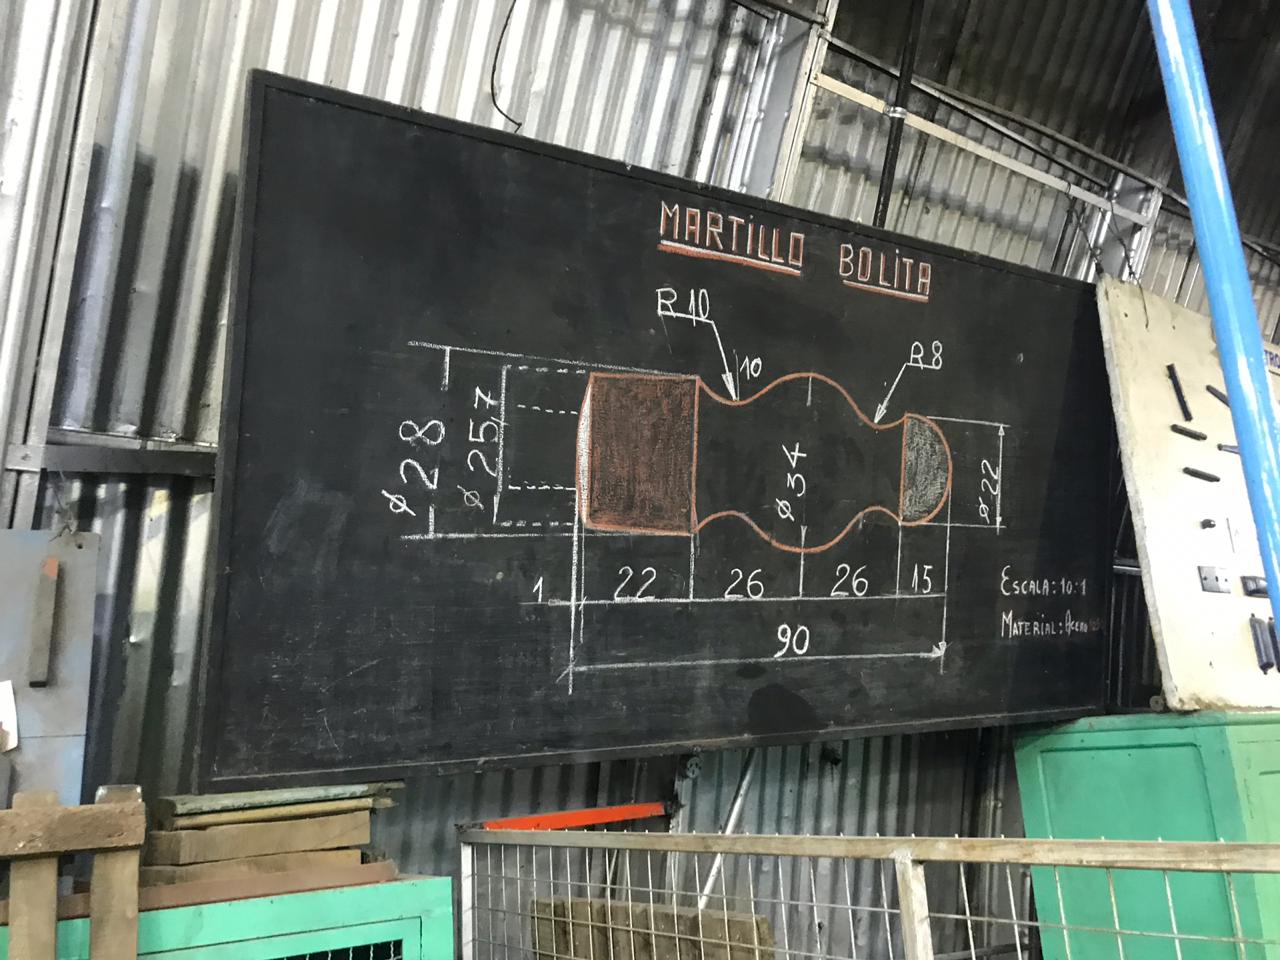 MARTILLO BOLITA
R 10
10
R 8
ø 28
ø 25,7
ø 34
ø 22
1
22
26
26
15
90
ESCALA: 10:1
MATERIAL: ACERO